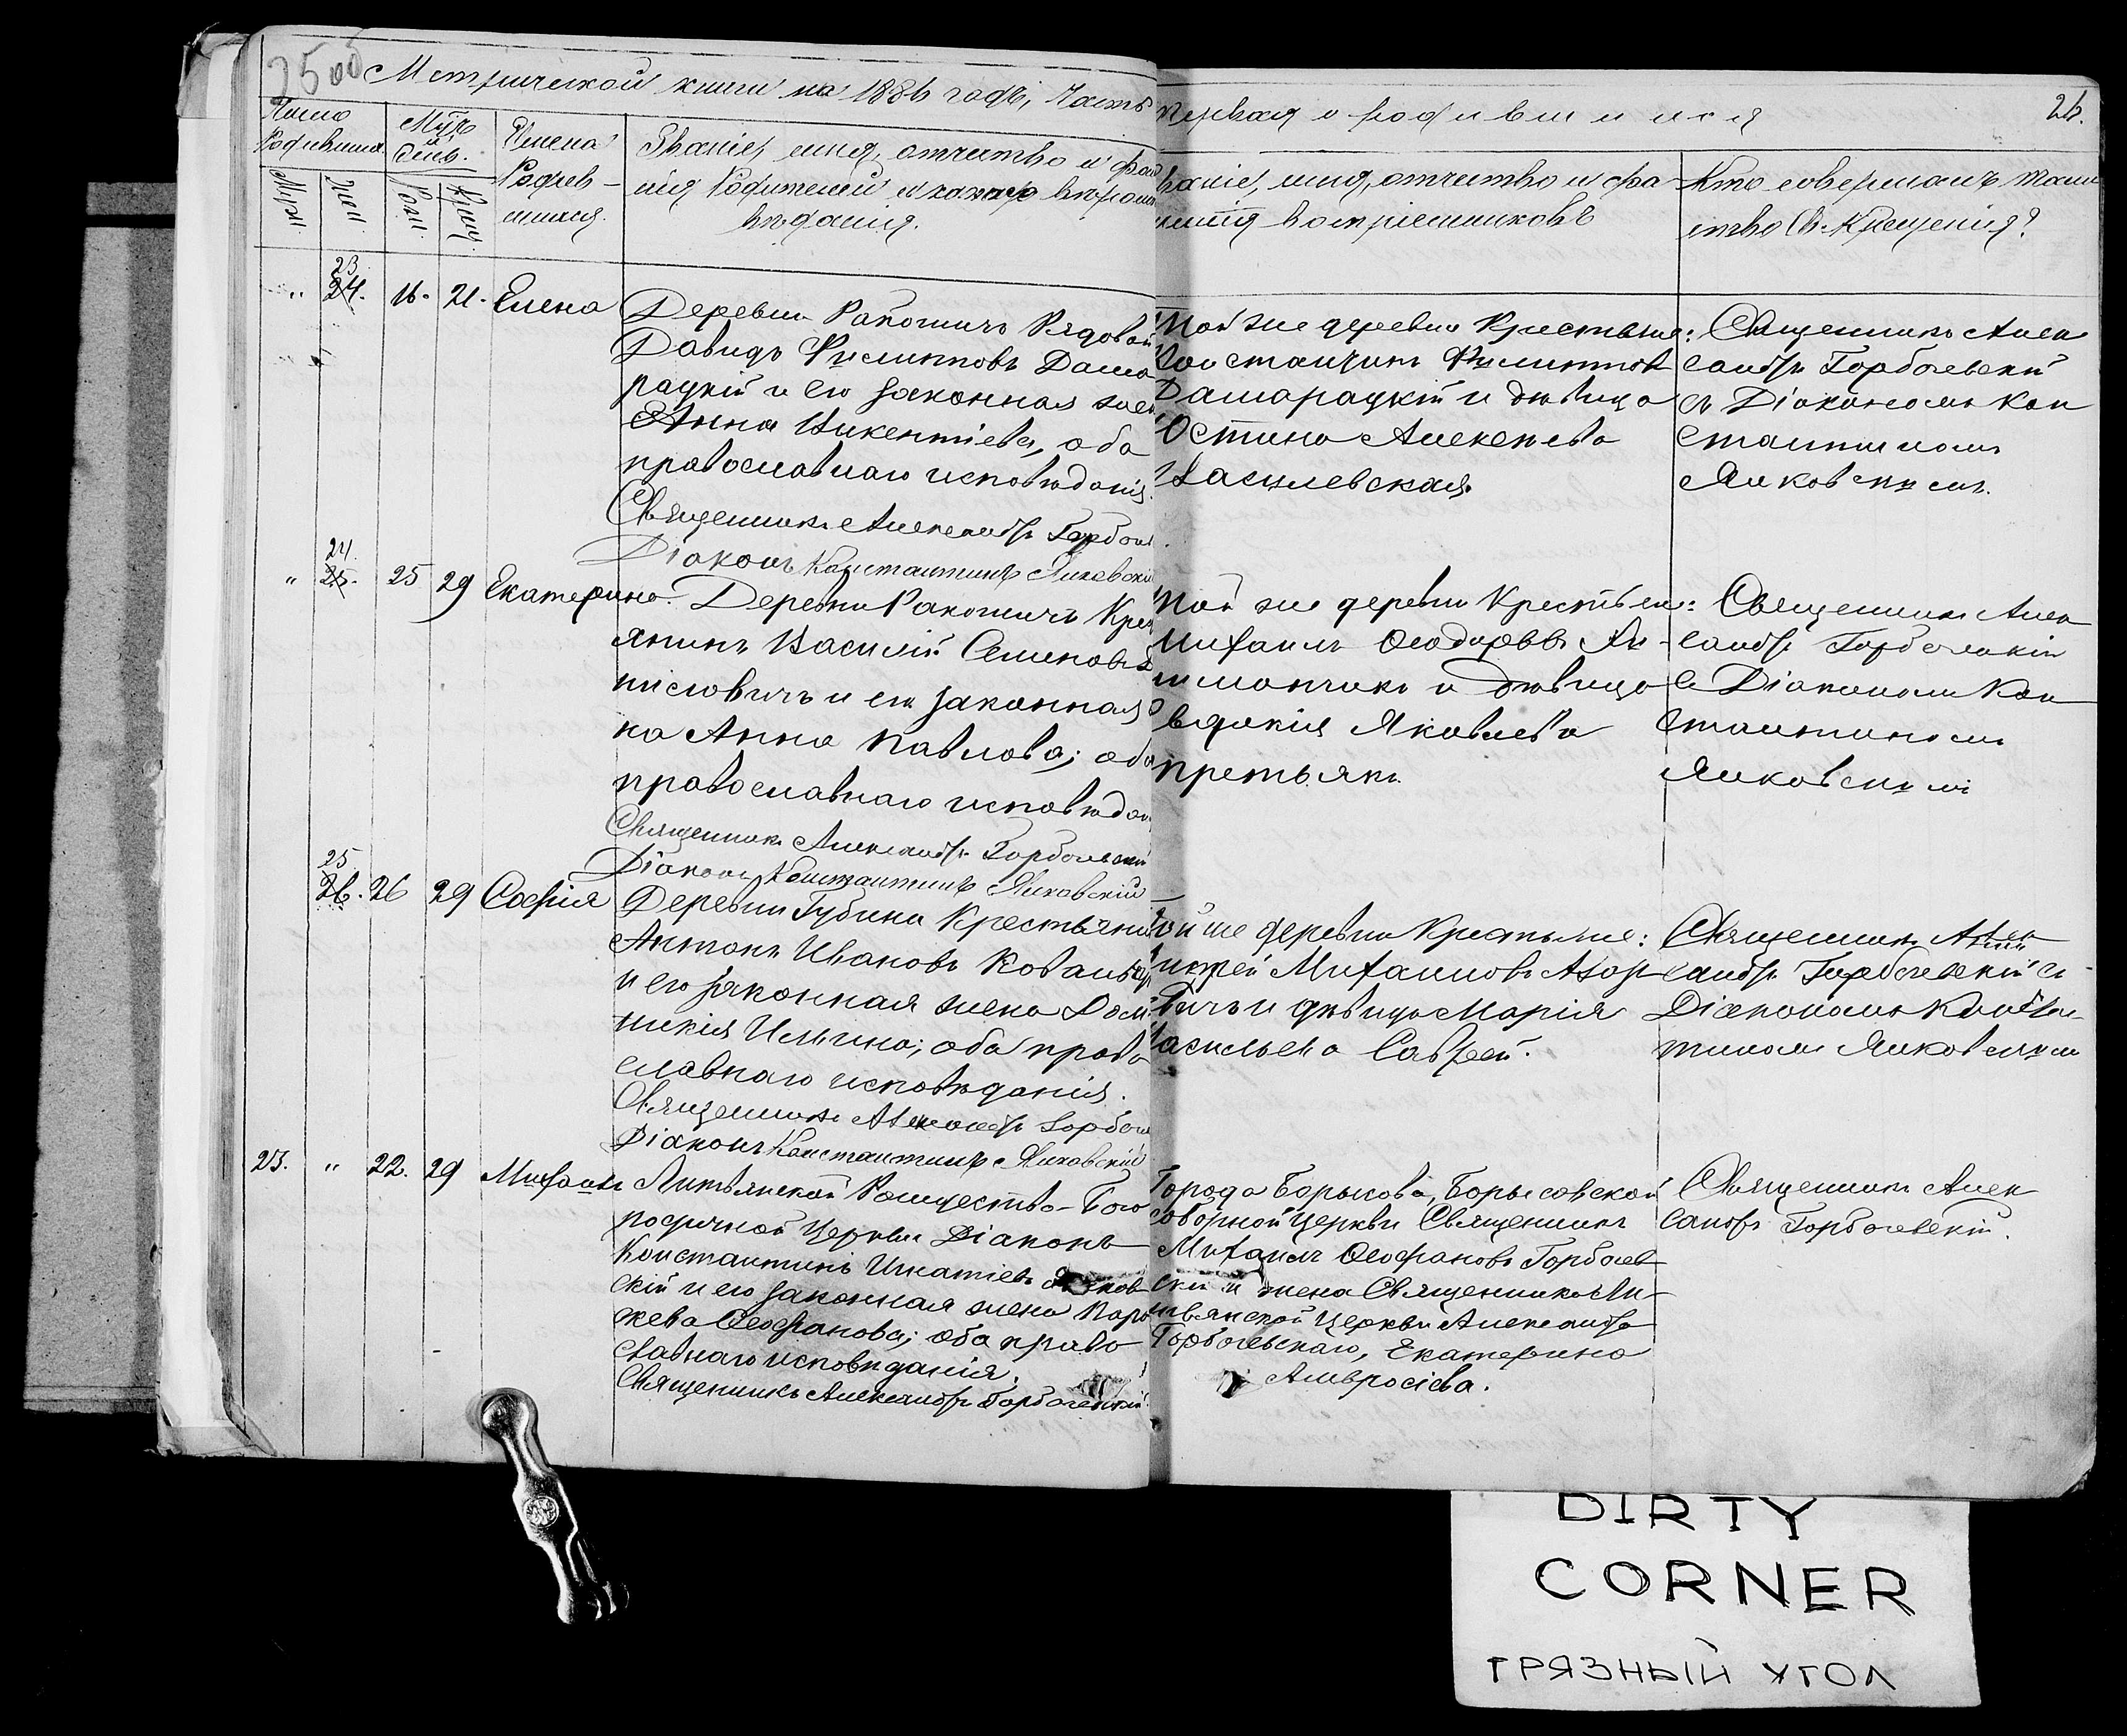 25об Метрической книги на 1886 годъ, Часть первая о родившихся 26.
Число Родившихся. Мѣс. и День. Имена Родившихся.
Муж. Жен. Рож. Крещ.
Званіе, имя, отчество и фами
лія Родителей и какого вѣроис
вѣданія.
Званіе, имя, отчество и фа-
милія воспріемниковъ
Кто совершалъ таин
ство Св. Крещенія?
23
" 24. 16. 21. Елена
Деревни Ракошичъ Рядовой
Давидъ Филиповъ Дама
рацкій и его законная жен
Анна Викентіева, оба
православнаго исповѣданія.
Священникъ Александръ Горбач
Діаконъ Константинъ Янковскій
Той же деревни Крестьяне:
Константинъ Филиповъ
Дамарацкій и дѣвица
Іустина Алексѣева
Василевская.
Священникъ Алек
сандръ Горбачевскій
съ Діакономъ Кон
стантиномъ
Янковскимъ.
24.
" 25. 25 29 Екатерина.
Деревни Ракошичъ Крес
янинъ Василій Семеновъ
писловичъ и его законная
ка Анна Павлова; оба
православнаго исповѣдан
Священникъ Александръ Горбачевскій
Діаконъ Константинъ Янковскій
Той же деревни Крестьяне:
Михаилъ Ѳеодоровъ
и дѣвица
вдокія Яковлева
претьякъ
Священникъ Алек
сандръ Горбачевскій
съ Діакономъ Кон
стантиномъ
Янковскимъ
25
26. 26 29 Софія
Деревни Губина Крестьянинъ
Антонъ Ивановъ
и его законная жена Дом
никія Ильина; оба право
славнаго исповѣданія.
Священникъ Александръ Горбач
Діаконъ Константинъ Янковскій
ой же деревни Крестьяне:
Михаиловъ Азар
вичъ и дѣвица Марія
Васильева
Священникъ Алек
сандръ Горбачевскій съ
Діакономъ Констан
тиномъ Янковскимъ
23. " 22. 29 Михаилъ
Литвянской Рождество-Бого
родичной Церкви Діаконъ
Константинъ Игнатіевъ Янков
скій и его законная жена Парас
кева Ѳеофанова; оба право
славнаго исповѣданія.
Священникъ Александръ Горбачевскій
Города Борисова, Борисовской
соборной Церкви Священникъ
Михаилъ Ѳеофановъ Горбачев
скій и жена Священника Ли-
твянской Церкви Александра
Горбачевскаго, Екатерина
Амвросіева.
Священникъ Алек
сандръ Горбачевскій.
DIRTY
CORNER
ГРЯЗНЫЙ УГОЛ